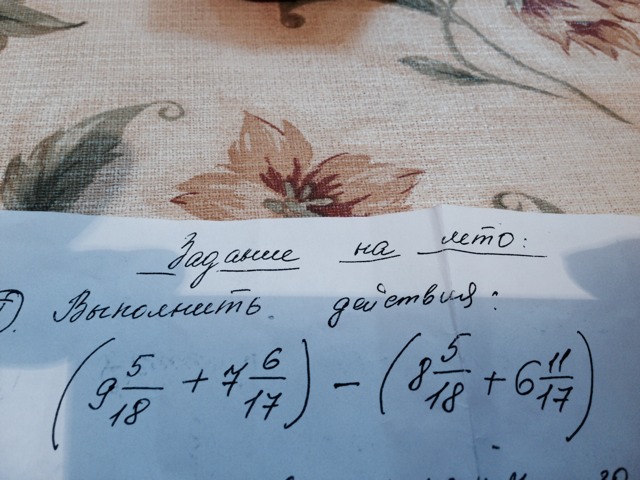 Задание на лето:
Выполнить действия:
(9 5/18 + 7 6/17) - (8 5/18 + 6 11/17)